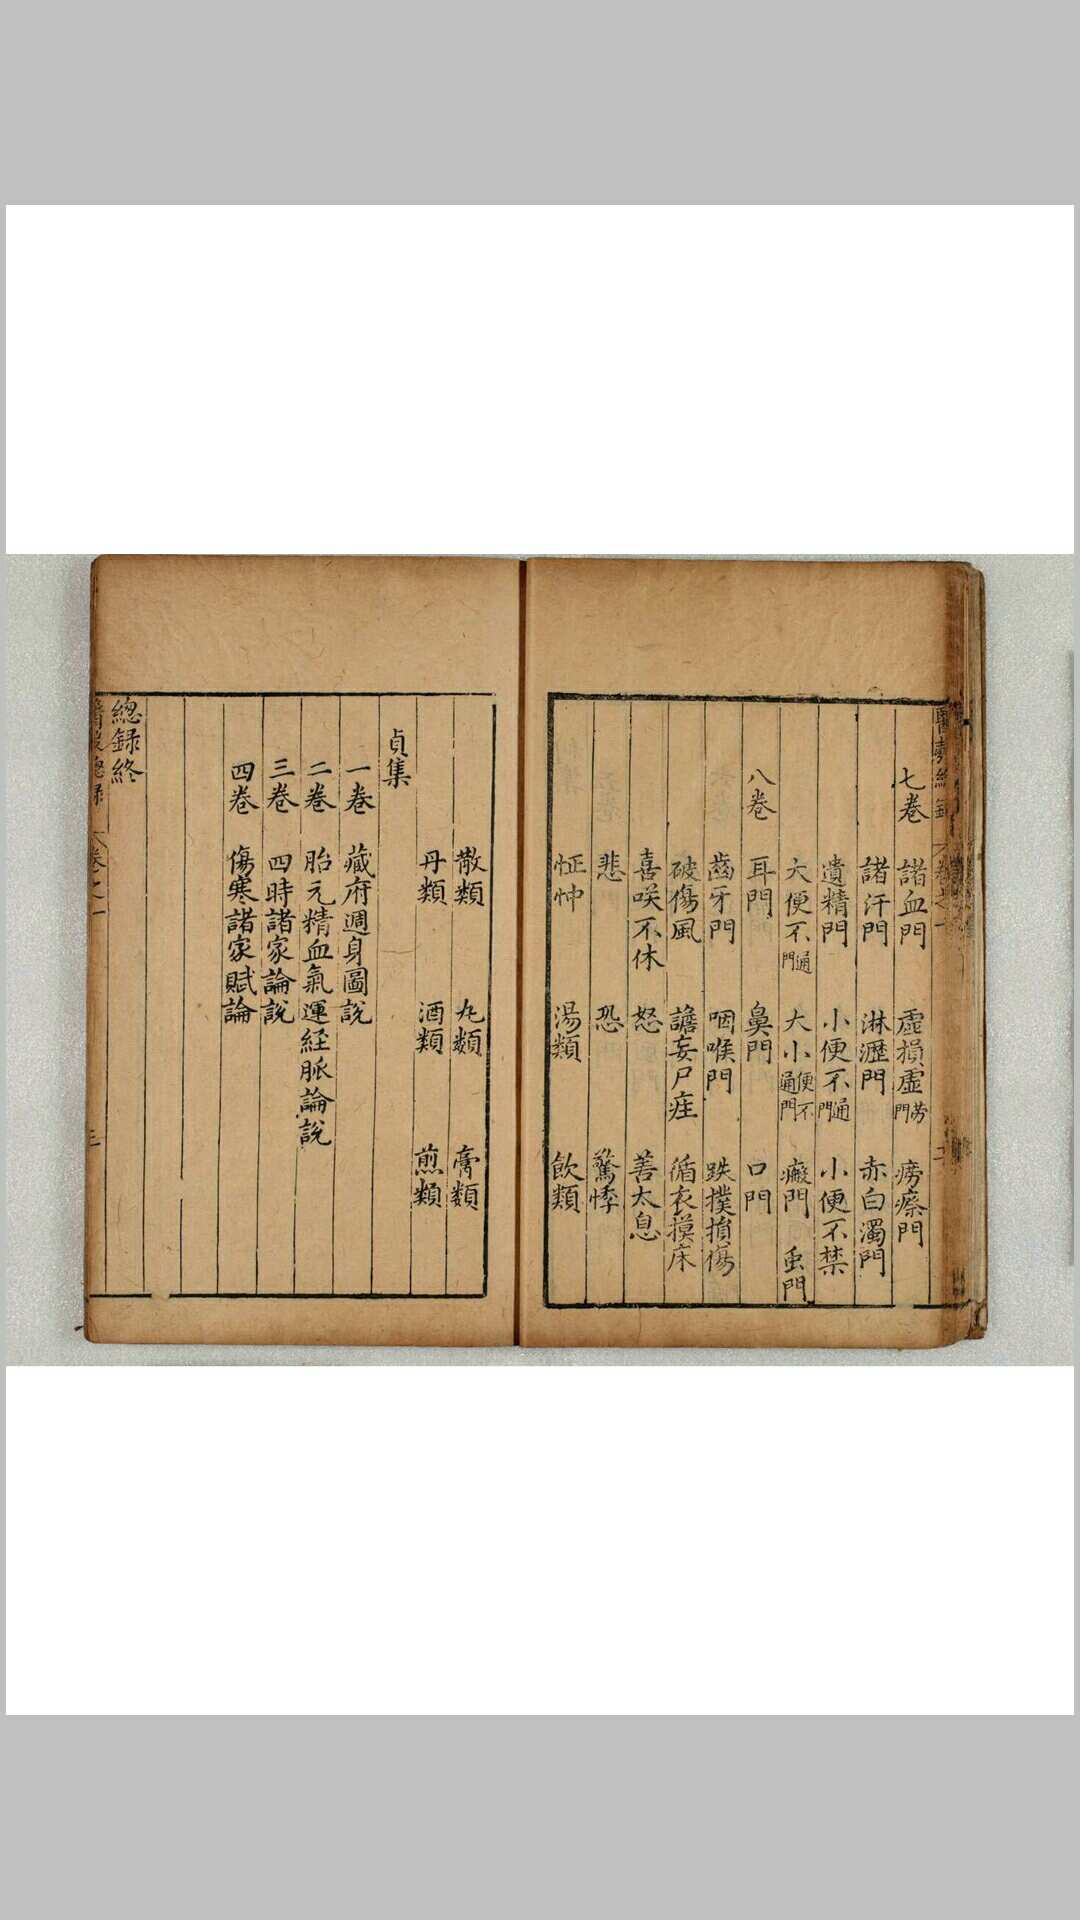 七卷 諸血門 虛損虛勞門 癆瘵門
諸汗門 淋瀝門 赤白濁門
遺精門 小便不通門 小便不禁
大便不通門 大小便不通門 癜門 虫門
八卷 耳門 鼻門 口門
齒牙門 咽喉門 跌撲損傷
破傷風 譫妄尸疰 循衣摸床
喜咲不休 怒 善太息
悲 恐 驚悸
怔忡 湯類 飲類
散類 丸類 膏類
丹類 酒類 煎類
貞集
一卷 藏府週身圖說
二卷 胎元精血氣運経脈論說
三卷 四時諸家論說
四卷 傷寒諸家賦論
總録終
卷之一
三